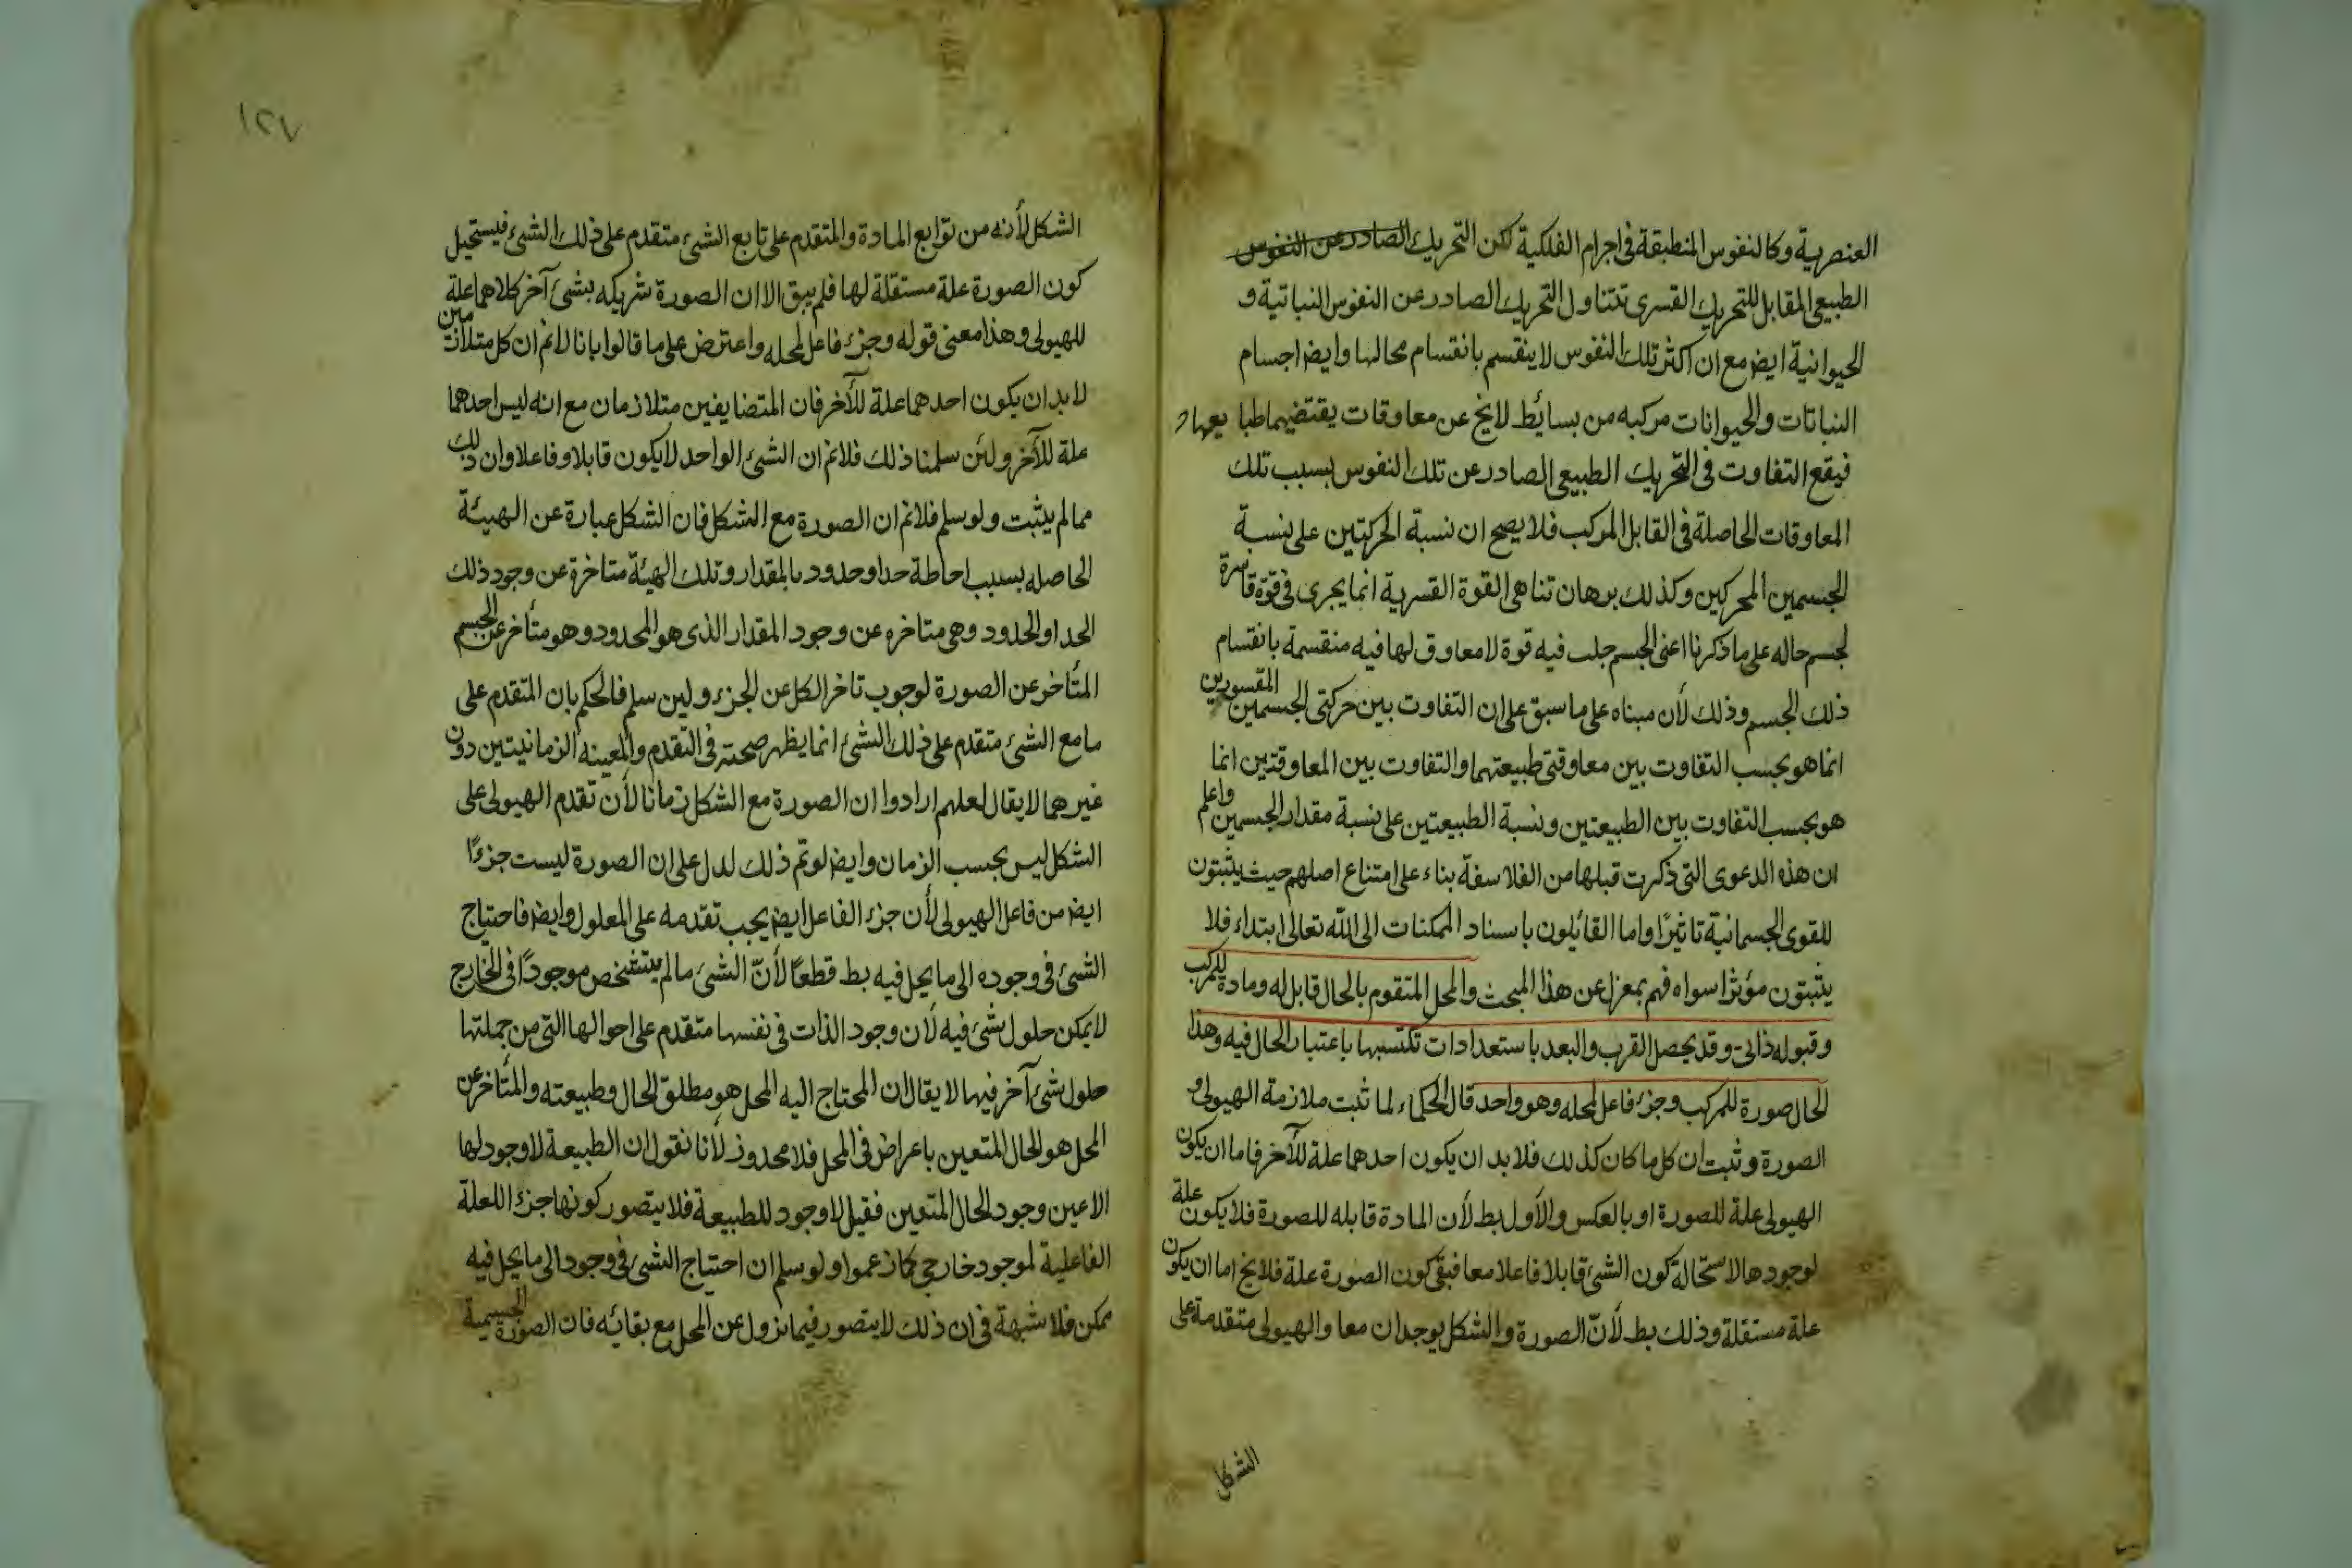 العنصرية وكالنفوس المنطبقة في اجرام الفلكية لكن التحريك الصادر عن النفوس
الطبيعي المقابل للتحريك القسري تتناول التحريك الصادر عن النفوس النباتية و
الحيوانية ايض مع ان اكثر تلك النفوس لا ينقسم بانقسام محالها وايض اجسام
النباتات والحيوانات مركبه من بسائط لا يخ عن معاوقات يقتضيها طبايعها
فيقع التفاوت في التحريك الطبيعي الصادر عن تلك النفوس بسبب تلك
المعاوقات الحاصلة في القابل المركب فلا يصح ان نسبة الحركتين على نسبة
الجسمين المحركين وكذلك برهان تناهي القوة القسرية انما يجري في قوة قاسرة
لجسم حاله على ما ذكرنا اعني الجسم حلت فيه قوة لا معاوق لها فيه منقسمة بانقسام
ذلك الجسم وذلك لأن مبناه على ما سبق على ان التفاوت بين حركتي الجسمين المقسورين
انما هو بحسب التفاوت بين معاوقتي طبيعتهما والتفاوت بين المعاوقتين انما
هو بحسب التفاوت بين الطبيعتين ونسبة الطبيعتين على نسبة مقدار الجسمين واعلم
ان هذه الدعوى التي ذكرت قبلها من الفلاسفة بناء على امتناع اصلهم حيث يثبتون
للقوى الجسمانية تاثيرًا واما القائلون باسناد الممكنات الى الله تعالى ابتداء فلا
يثبتون مؤثرا سواه فهم بمعزل عن هذا المبحث والمحل المتقوم بالحال قابل له ومادة للمركب
وقبوله ذاتي وقد يحصل القرب والبعد باستعدادات تكتسبها باعتبار الحال فيه وهذا
الحال صورة للمركب وجزء فاعل لمحله وهو واحد قال الحكماء لما ثبت ملازمة الهيولى و
الصورة وثبت ان كل ما كان كذلك فلا بد ان يكون احدهما علة للآخر فاما ان يكون
الهيولى علة للصورة او بالعكس والأول بط لأن المادة قابله للصورة فلا يكون علة
لوجودها لاستحالة كون الشئ قابلا فاعلا معا فبقى كون الصورة علة فلا يخ اما ان يكون
علة مستقلة وذلك بط لأنّ الصورة والشكل يوجدان معا والهيولى متقدمة على
الشكل
١٢٧
الشكل لأنه من توابع المادة والمتقدم على تابع الشئ متقدم على ذلك الشئ فيستحيل
كون الصورة علة مستقلة لها فلم يبق الا ان الصورة شريكه بشئ آخر كلاهما علة
للهيولى وهذا معنى قوله وجزء فاعل لمحله واعترض على ما قالوا بانا لا نم ان كل متلازمين
لا بد ان يكون احدهما علة للآخر فان المتضايفين متلازمان مع انه ليس احدهما
علة للآخر ولئن سلمنا ذلك فلا نم ان الشئ الواحد لا يكون قابلا وفاعلا وان ذلك
مما لم يثبت ولو سلم فلا نم ان الصورة مع الشكل فان الشكل عبارة عن الهيئة
الحاصله بسبب احاطة حد او حدود بالمقدار وتلك الهيئة متاخرة عن وجود ذلك
الحد او الحدود وهي متاخره عن وجود المقدار الذي هو المحدود وهو متأخر عن الجسم
المتأخر عن الصورة لوجوب تاخر الكل عن الجزء ولين سلم فالحكم بان المتقدم على
ما مع الشئ متقدم على ذلك الشئ انما يظهر صحته في التقدم والمعيته الزمانيتين دون
غيرهما لا يقال لعلهم ارادوا ان الصورة مع الشكل زمانا لأن تقدم الهيولى على
الشكل ليس بحسب الزمان وايض لو تم ذلك لدل على ان الصورة ليست جزءًا
ايض من فاعل الهيولى لأن جزء الفاعل ايض يجب تقدمه على المعلول وايض فاحتياج
الشئ في وجوده الى ما يحل فيه بط قطعًا لأنّ الشئ ما لم يتشخص موجودًا في الخارج
لا يمكن حلول شئ فيه لأن وجود الذات في نفسها متقدم على احوالها التي من جملتها
حلول شئ آخر فيها لا يقال ان المحتاج اليه المحل هو مطلق الحال وطبيعته والمتأخر عن
المحل هو الحال المتعين باعراض في المحل فلا محذور لأنا نقول ان الطبيعة لا وجود لها
الا عين وجود الحال المتعين فقبل لا وجود للطبيعة فلا يتصور كونها جزءا للعلة
الفاعلية لموجود خارجي كما زعموا ولو سلم ان احتياج الشئ في وجود الى ما يحل فيه
ممكن فلا شبهة في ان ذلك لا يتصور فيما يزول عن المحل مع بقائه فان الصورة الجسمية